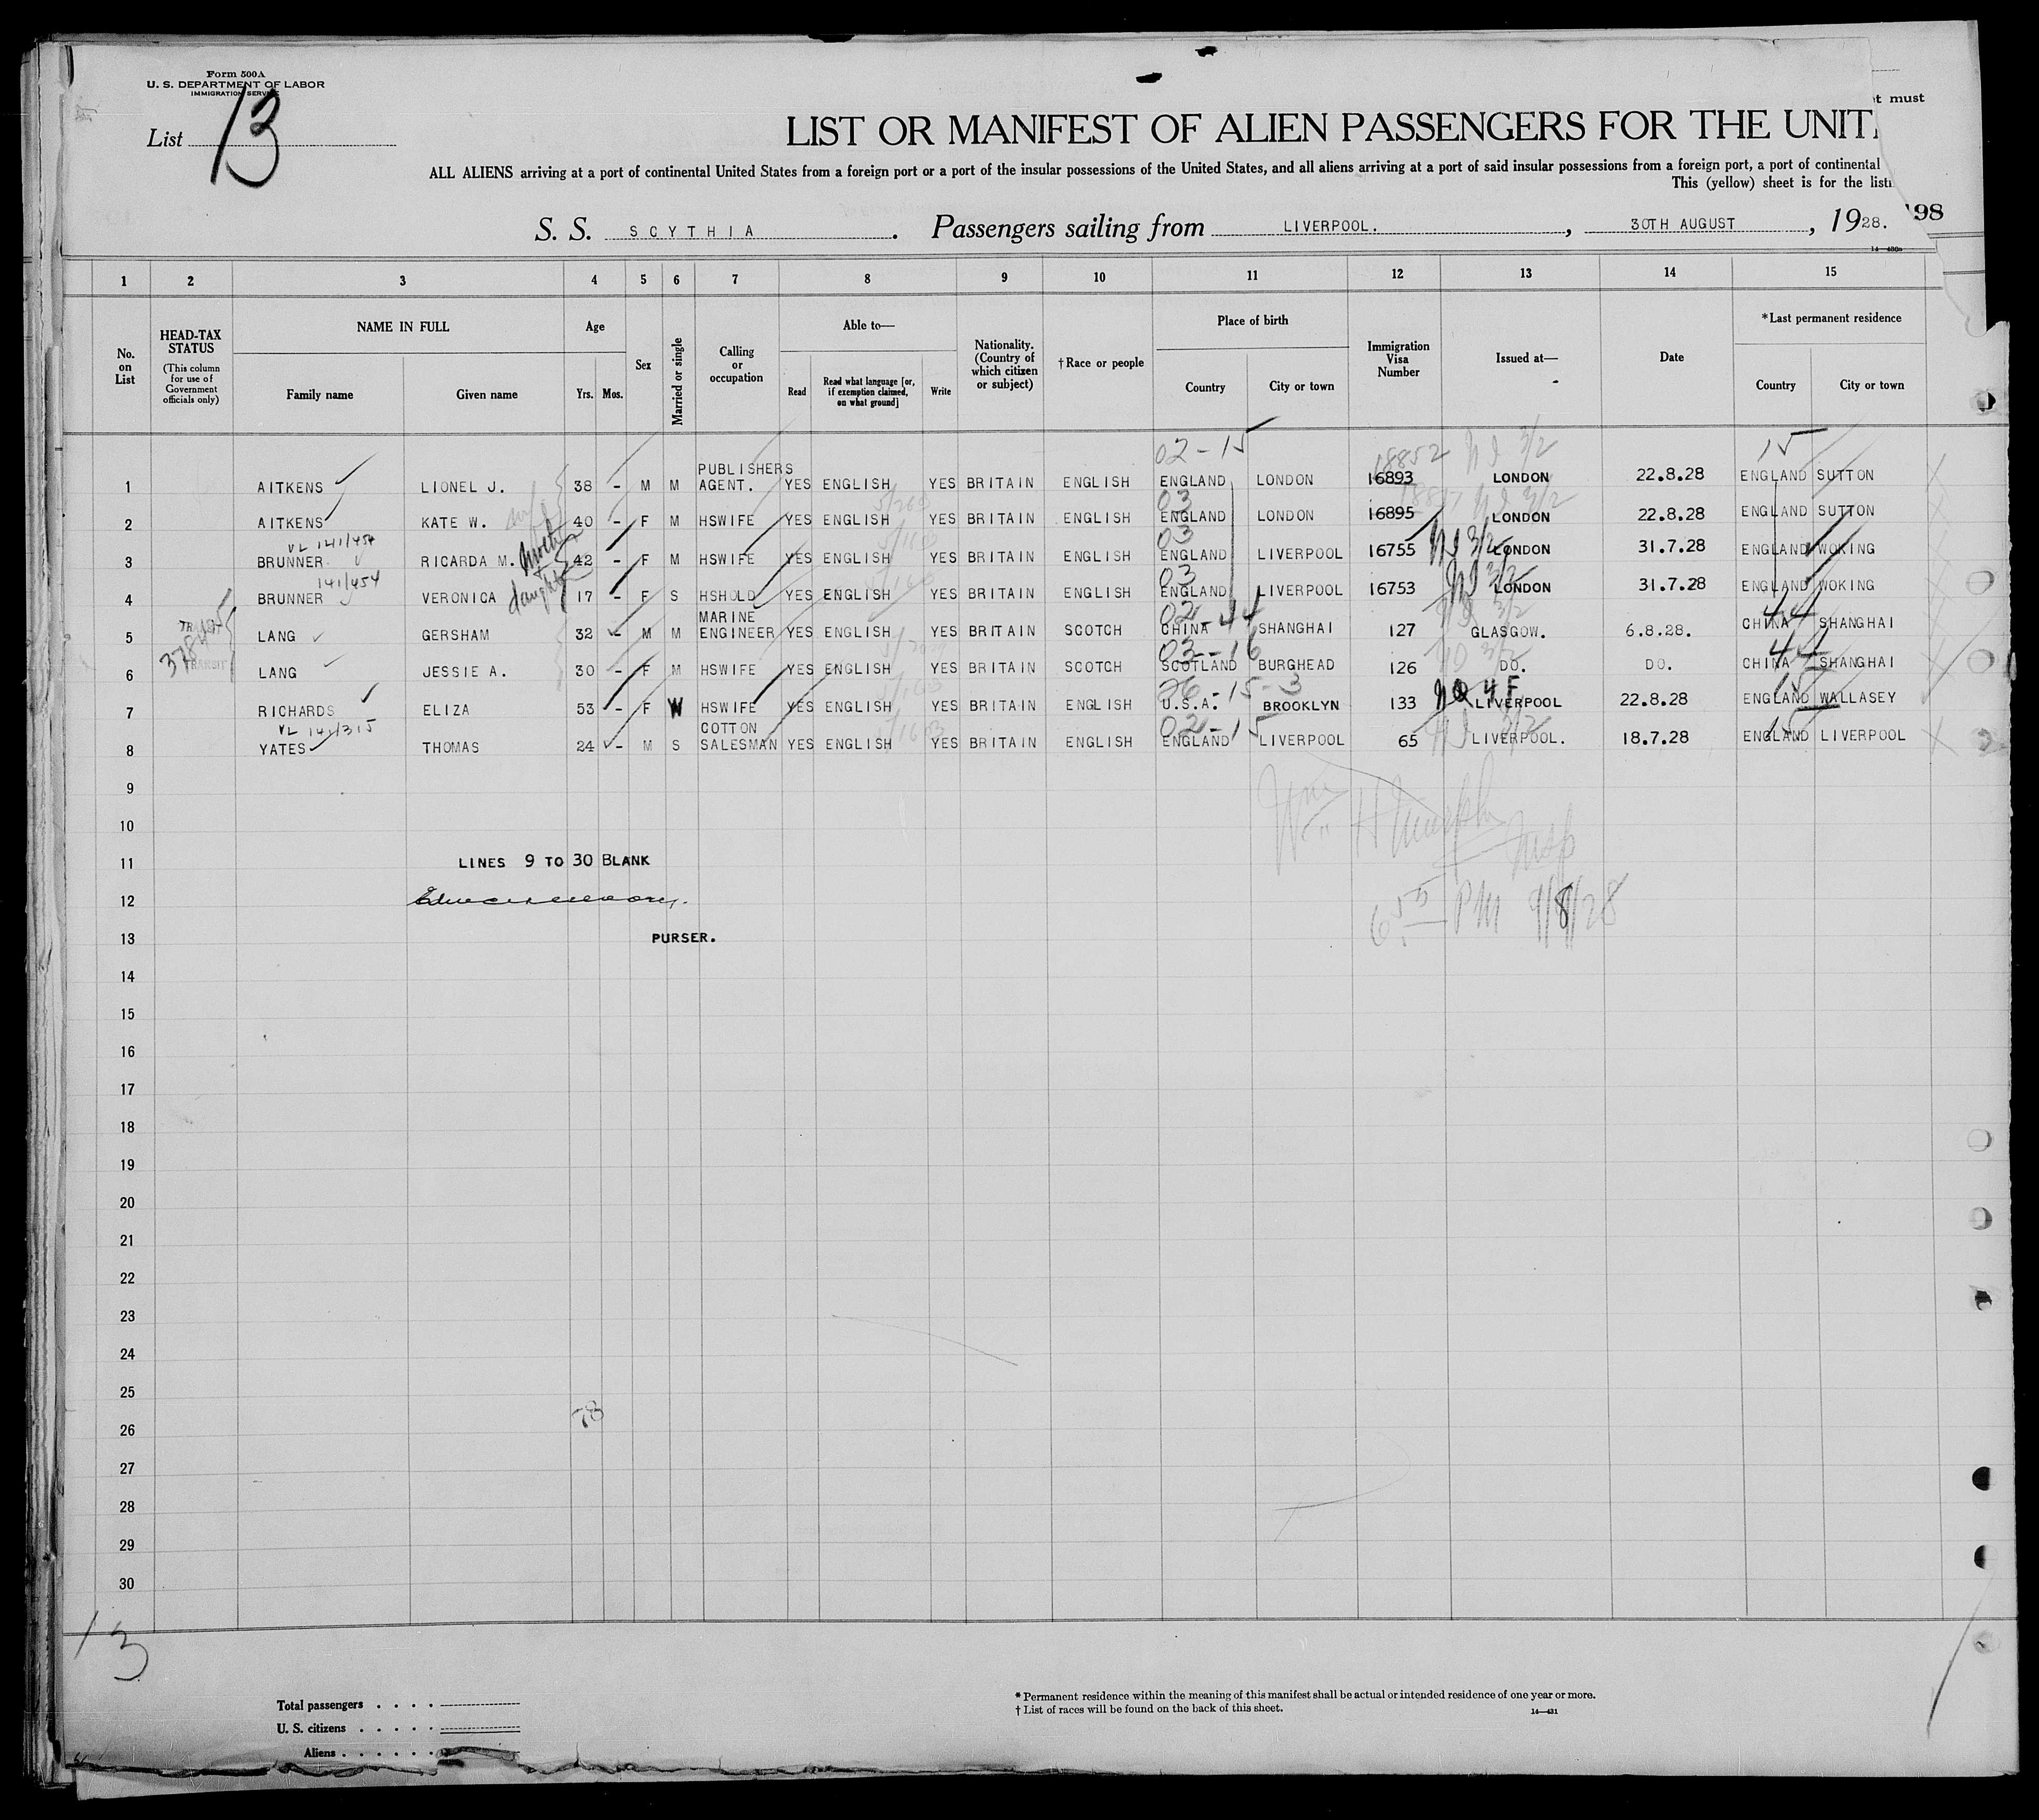 Form 500A
U. S. DEPARTMENT OF LABOR
IMMIGRATION SERVICE
List 13
t must
LIST OR MANIFEST OF ALIEN PASSENGERS FOR THE UNIT
ALL ALIENS arriving at a port of continental United States from a foreign port or a port of the insular possessions of the United States, and all aliens arriving at a port of said insular possessions from a foreign port, a port of continental
This (yellow) sheet is for the listi
S. S. SCYTHIA. Passengers sailing from LIVERPOOL., 30TH AUGUST, 1928. 98
1 2 3 4 5 6 7 8 9 10 11 12 13 14 15
No. on List
HEAD-TAX STATUS
(This column for use of Government officials only)
NAME IN FULL
Family name Given name
Age
Yrs. Mos.
Sex
Married or single
Calling or occupation
Able to—
Read
Read what language [or, if exemption claimed, on what ground]
Write
Nationality. (Country of which citizen or subject)
†Race or people
Place of birth
Country City or town
Immigration Visa Number
Issued at—
Date
*Last permanent residence
Country City or town
02-15 18852 3/2 15
1 AITKENS LIONEL J. 38 - M M PUBLISHERS AGENT. YES ENGLISH YES BRITAIN ENGLISH ENGLAND LONDON 16893 LONDON 22.8.28 ENGLAND SUTTON
03 3/2
2 AITKENS KATE W. wife 40 - F M HSWIFE YES ENGLISH YES BRITAIN ENGLISH ENGLAND LONDON 16895 LONDON 22.8.28 ENGLAND SUTTON
VL 141/454 03 3/2
3 BRUNNER RICARDA M. mother 42 - F M HSWIFE YES ENGLISH YES BRITAIN ENGLISH ENGLAND LIVERPOOL 16755 LONDON 31.7.28 ENGLAND WOKING
141/454 03 3/2
4 BRUNNER VERONICA daughter 17 - F S HSHOLD YES ENGLISH YES BRITAIN ENGLISH ENGLAND LIVERPOOL 16753 LONDON 31.7.28 ENGLAND WOKING
02-44 3/2 44
5 LANG GERSHAM 32 - M M MARINE ENGINEER YES ENGLISH YES BRITAIN SCOTCH CHINA SHANGHAI 127 GLASGOW. 6.8.28. CHINA SHANGHAI
TRANSIT 03-16 3/2 44
6 LANG JESSIE A. 30 - F M HSWIFE YES ENGLISH YES BRITAIN SCOTCH SCOTLAND BURGHEAD 126 DO. DO. CHINA SHANGHAI
26-15-3 4F 15
7 RICHARDS ELIZA 53 - F W HSWIFE YES ENGLISH YES BRITAIN ENGLISH U.S.A. BROOKLYN 133 LIVERPOOL 22.8.28 ENGLAND WALLASEY
VL 141/315 02-15 3/2 15
8 YATES THOMAS 24 - M S COTTON SALESMAN YES ENGLISH YES BRITAIN ENGLISH ENGLAND LIVERPOOL 65 LIVERPOOL. 18.7.28 ENGLAND LIVERPOOL
9
Wm H Murphy
10
Insp
11 LINES 9 TO 30 BLANK
12
PM 9/8/28
13 PURSER.
14
15
16
17
18
19
20
21
22
23
24
25
78
26
27
28
29
30
13
Total passengers . . . .
U. S. citizens . . . . .
Aliens . . . . . .
* Permanent residence within the meaning of this manifest shall be actual or intended residence of one year or more.
† List of races will be found on the back of this sheet.
14—431